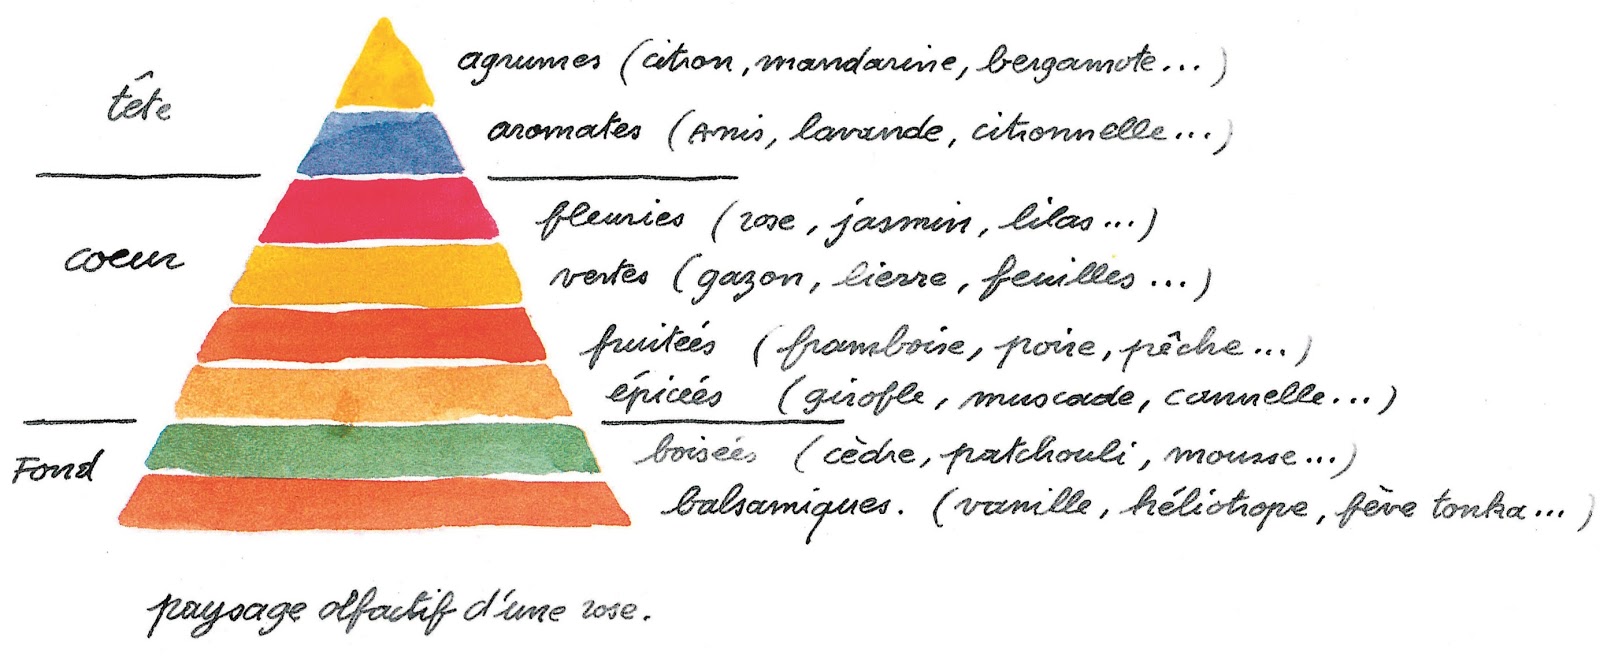 agrumes (citron, mandarine, bergamote...)
tête
aromates (Anis, lavande, citronnelle...)
fleuries (rose, jasmin, lilas...)
coeur
vertes (gazon, lierre, feuilles...)
fruitées (framboise, poire, pêche...)
épicées (girofle, muscade, cannelle...)
boisées (cèdre, patchouli, mousse...)
Fond
balsamiques. (vanille, héliotrope, fève tonka...)
paysage olfactif d'une rose.